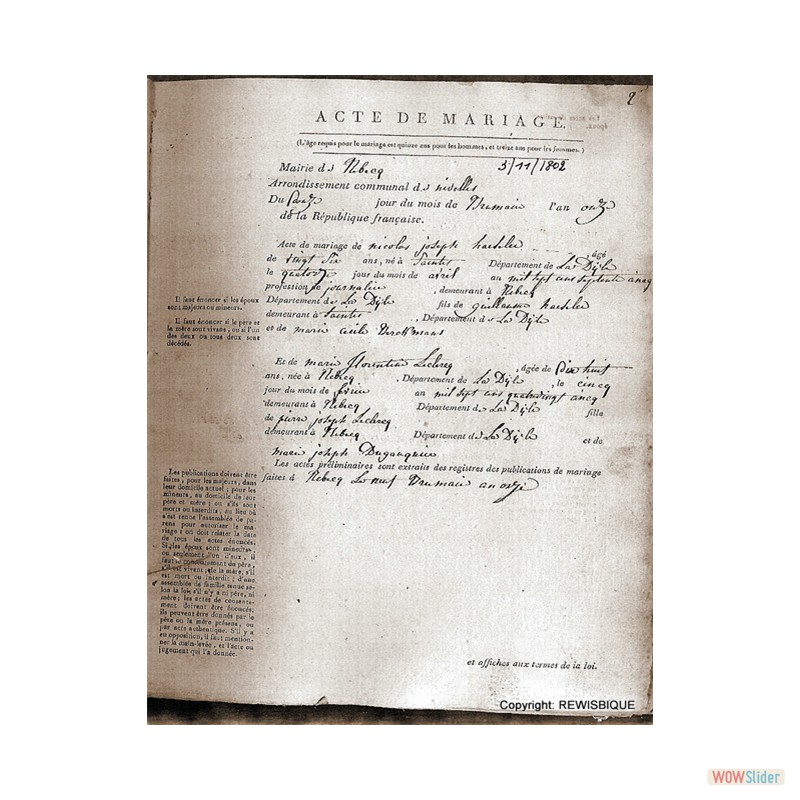 2
ACTE DE MARIAGE.
(L'âge requis pour le mariage est quinze ans pour les hommes, et treize ans pour les femmes.)
Mairie de Rebecq 5/11/1802
Arrondissement communal de nivelles
Du jour du mois de Brumaire l'an onze
de la République française.
Acte de mariage de nicolas joseph âgé
de vingt six ans, né à Saintes Département de La Dyle
le quatorze jour du mois de avril an mil sept cens septente cincq
profession de journalier , demeurant à Rebecq
Département de La Dyle fils de guillaume
demeurant à Saintes , Département de La Dyle
et de marie
Et de marie florentine Leclercq , âgée de Dix huit
ans, née à Rebecq , Département de La Dyle , le cincq
jour du mois de an mil sept cens quatrevingt cincq
demeurant à Rebecq Département de La Dyle fille
de pierre joseph Leclercq
demeurant à Rebecq Département de La Dyle et de
marie joseph
Les actes préliminaires sont extraits des registres des publications de mariage
faites à Rebecq Le neuf Brumaire an onze
et affichés aux termes de la loi.
Il faut énoncer si les époux
sont majeurs ou mineurs.
Il faut énoncer si le père et
la mère sont vivans, ou si l'un
des deux ou tous deux sont
décédés.
Les publications doivent être
faites, pour les majeurs, dans
leur domicile actuel; pour les
mineurs, au domicile de leur
père et mère; ou s'ils sont
morts ou interdits, au lieu où
s'est tenue l'assemblée de pa-
rens pour autoriser le ma-
riage: on doit relater la date
de tous les actes énoncés.
Si les époux sont mineurs
ou seulement l'un d'eux, il
faut le consentement du père,
s'il est vivant; de la mère, s'il
est mort ou interdit; d'une
assemblée de famille tenue se-
lon la loi s'il n'y a ni père, ni
mère; les actes de consente-
ment doivent être énoncés;
ils peuvent être donnés par le
père ou la mère présens, ou
par acte authentique. S'il y a
eu opposition, il faut mention-
ner la main-levée, et l'acte ou
jugement qui l'a donnée.
Copyright: REWISBIQUE
WOWSlider